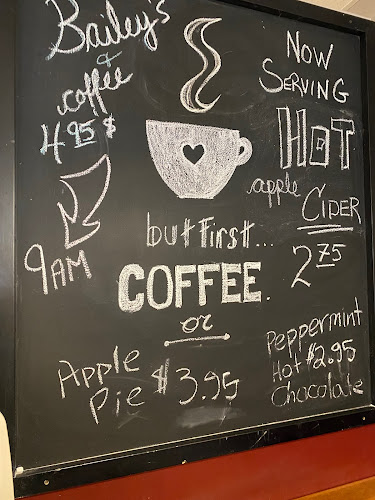 Bailey's
&
coffee
4 95 $
9AM
but first...
COFFEE.
or
Apple
Pie $3.95
NOW
SERVING
HOT
apple
CIDER
2 75
Peppermint
Hot $2.95
Chocolate